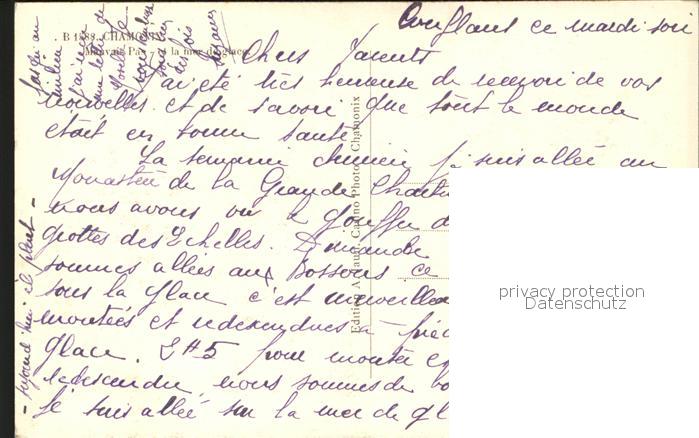 B 1588. CHAMONIX
et la mer de glace.
Conflans ce mardi soir
Chers Parents
J'ai été très heureuse de recevoir de vos
nouvelles et de savoir que tout le monde
était en bonne santé
La semaine dernière je suis allée au
Monastère de la Grande Chart
nous avons vu le Gouffre d
grottes des Echelles. Dimanche
sommes allées aux Bossons ce
sous la glace c'est merveilleu
montées et redescendues à pied
glace. 2 H 5 pour monter e
redescendre, nous sommes de bo
Je suis allée sur la mer de gl
Edition A. Cabino Photo, Chamonix
- aujourd'hui il pleut -
J'ai eu
une lettre de
privacy protection
Datenschutz